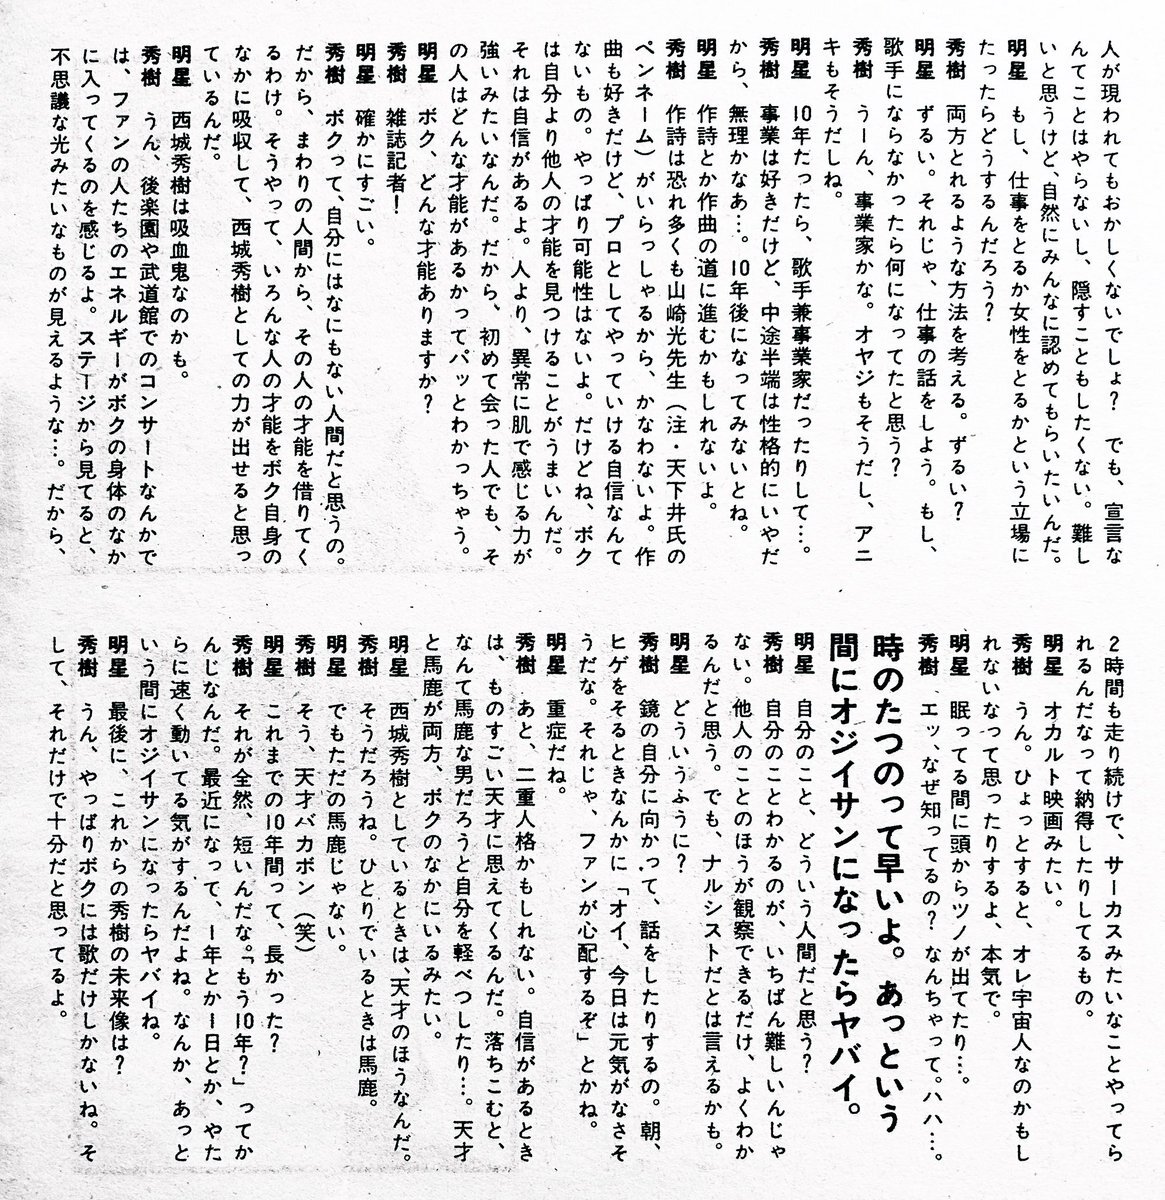 人が現われてもおかしくないでしょ？　でも、宣言な
んてことはやらないし、隠すこともしたくない。難し
いと思うけど、自然にみんなに認めてもらいたいんだ。
明星　もし、仕事をとるか女性をとるかという立場に
たったらどうするんだろう？
秀樹　両方とれるような方法を考える。ずるい？
明星　ずるい。それじゃ、仕事の話をしよう。もし、
歌手にならなかったら何になってたと思う？
秀樹　うーん、事業家かな。オヤジもそうだし、アニ
キもそうだしね。
明星　10年たったら、歌手兼事業家だったりして…。
秀樹　事業は好きだけど、中途半端は性格的にいやだ
から、無理かなあ…。10年後になってみないとね。
明星　作詩とか作曲の道に進むかもしれないよ。
秀樹　作詩は恐れ多くも山崎光先生（注・天下井氏の
ペンネーム）がいらっしゃるから、かなわないよ。作
曲も好きだけど、プロとしてやっていける自信なんて
ないもの。やっぱり可能性はないよ。だけどね、ボク
は自分より他人の才能を見つけることがうまいんだ。
それは自信があるよ。人より、異常に肌で感じる力が
強いみたいなんだ。だから、初めて会った人でも、そ
の人はどんな才能があるかってパッとわかっちゃう。
明星　ボク、どんな才能ありますか？
秀樹　雑誌記者！
明星　確かにすごい。
秀樹　ボクって、自分にはなにもない人間だと思うの。
だから、まわりの人間から、その人の才能を借りてく
るわけ。そうやって、いろんな人の才能をボク自身の
なかに吸収して、西城秀樹としての力が出せると思っ
ているんだ。
明星　西城秀樹は吸血鬼なのかも。
秀樹　うん、後楽園や武道館でのコンサートなんかで
は、ファンの人たちのエネルギーがボクの身体のなか
に入ってくるのを感じるよ。ステージから見てると、
不思議な光みたいなものが見えるような…。だから、
2時間も走り続けで、サーカスみたいなことやってら
れるんだなって納得したりしてるもの。
明星　オカルト映画みたい。
秀樹　うん。ひょっとすると、オレ宇宙人なのかもし
れないなって思ったりするよ、本気で。
明星　眠ってる間に頭からツノが出てたり…。
秀樹　エッ、なぜ知ってるの？　なんちゃって。ハハ…。
時のたつのって早いよ。あっという
間にオジイサンになったらヤバイ。
明星　自分のこと、どういう人間だと思う？
秀樹　自分のことわかるのが、いちばん難しいんじゃ
ない。他人のことのほうが観察できるだけ、よくわか
るんだと思う。でも、ナルシストだとは言えるかも。
明星　どういうふうに？
秀樹　鏡の自分に向かって、話をしたりするの。朝、
ヒゲをそるときなんかに「オイ、今日は元気がなさそ
うだな。それじゃ、ファンが心配するぞ」とかね。
明星　重症だね。
秀樹　あと、二重人格かもしれない。自信があるとき
は、ものすごい天才に思えてくるんだ。落ちこむと、
なんて馬鹿な男だろうと自分を軽べつしたり…。天才
と馬鹿が両方、ボクのなかにいるみたい。
明星　西城秀樹としているときは、天才のほうなんだ。
秀樹　そうだろうね。ひとりでいるときは馬鹿。
明星　でもただの馬鹿じゃない。
秀樹　そう、天才バカボン（笑）
明星　これまでの10年間って、長かった？
秀樹　それが全然、短いんだな。「もう10年？」ってか
んじなんだ。最近になって、1年とか1日とか、やた
らに速く動いてる気がするんだよね。なんか、あっと
いう間にオジイサンになったらヤバイね。
明星　最後に、これからの秀樹の未来像は？
秀樹　うん、やっぱりボクには歌だけしかないね。そ
して、それだけで十分だと思ってるよ。